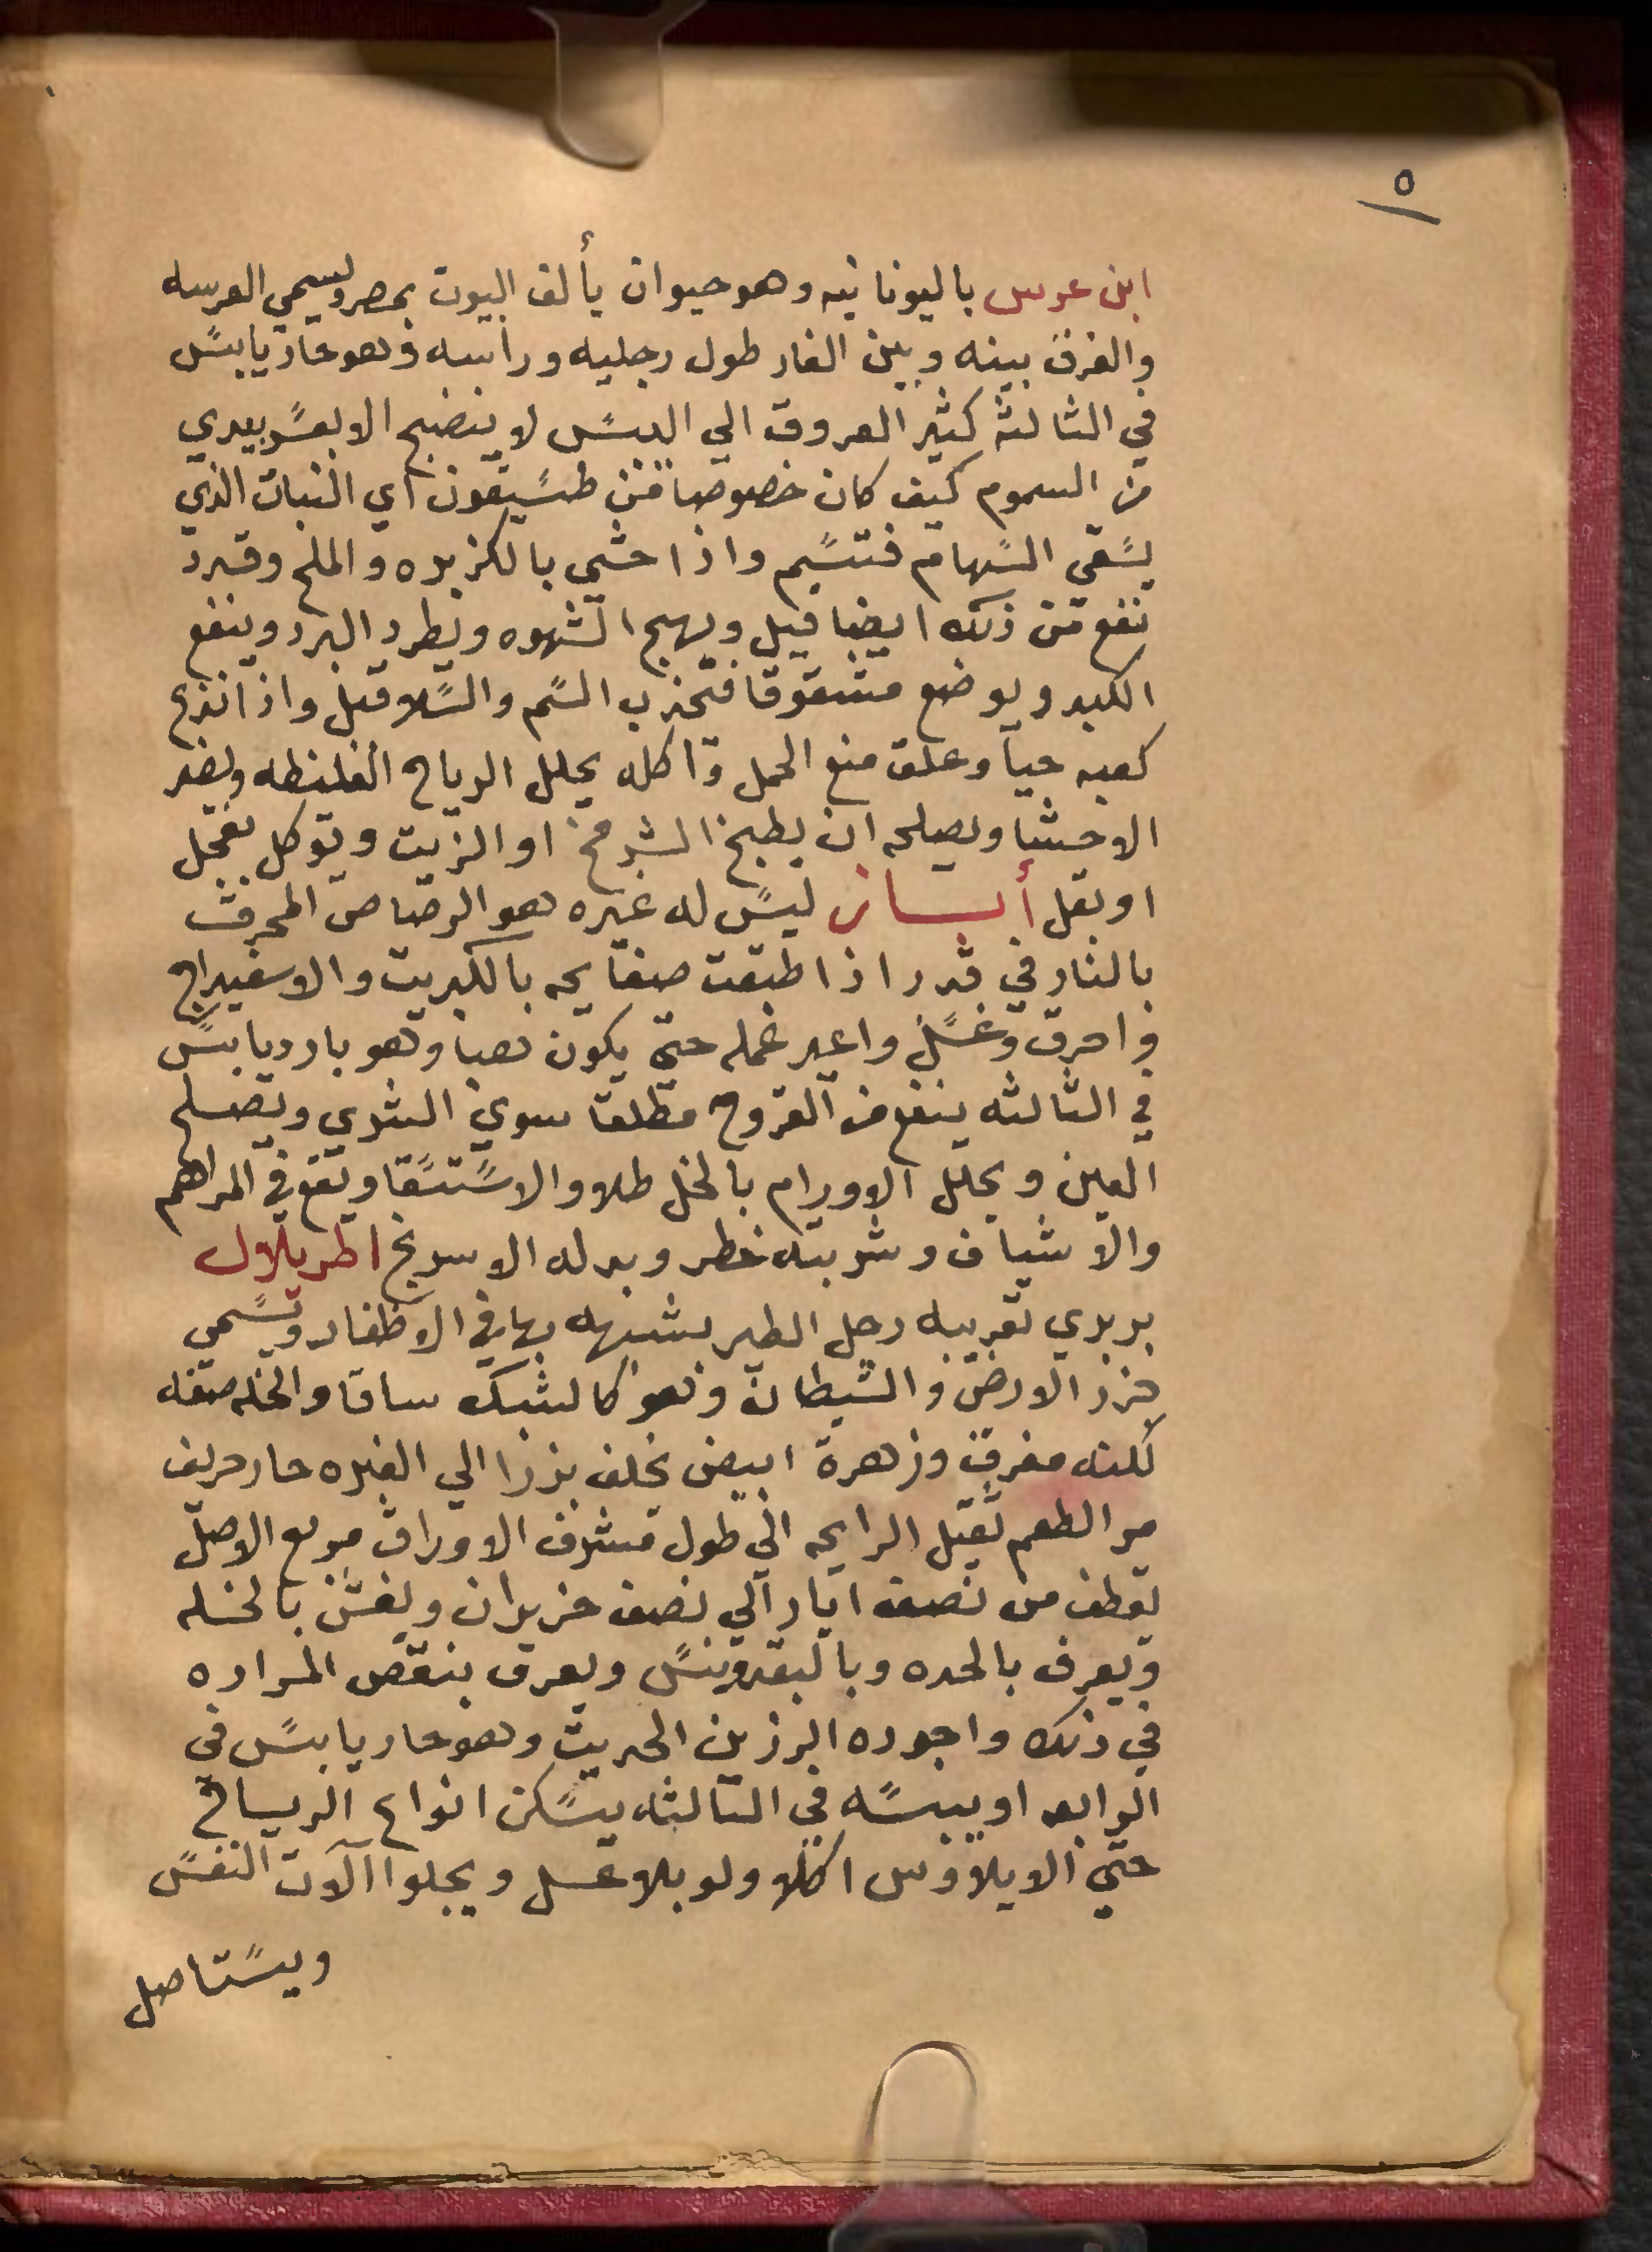 ٥
ابن عرس باليونانيه وهو حيوان يألف البيوت بمصر ويسمي العرسه
والفرق بينه وبين الفار طول رجليه وراسه وهو حار يابس
في الثالثة كثير العروق الي اليبس لا ينضج الا بعسر يبدي
من السموم كيف كان خصوصا من طسيقون اي النبات الذي
يسقي السهام فتسم واذا حشي بالكزبره والملح وقدد
نفع من ذلك ايضا قيل ويهيج الشهوه ويطرد البرد وينفع
الكبد ويوضع مشقوقا فتجذب السم والسلا قيل واذا نزع
كعبه حيا وعلق منع الحمل واكله يحلل الرياح الغليظه ويضر
الاحشا ويصلحه ان يطبخ الشيرج او الزيت ويوكل بفجل
او بقل أبسان ليس له غيره هو الرصاص المحرق
بالنار في قدر اذا طبقت صفايحه بالكبريت والاسفيداج
واحرق وغسل واعيد عمله حتي يكون هبا وهو بارد يابس
في الثالثه ينفع من القروح مطلقا سوي الشري ويصلح
العين ويحلل الاورام بالخل طلا والاستسقا ويقع في المراهم
والاشياف وشربته خطر وبدله الاسرنج اطريلال
بربري تعريبه رجل الطير يشبهه بها في الاظفار وتسمي
جزر الارض والشيطان وهو كالشبك ساقا والخله صفه
لكنه مفرق وزهرة ابيض يخلف بزرا الي الغبره حار حريف
مر الطعم ثقيل الرايحه الي طول مشرف الاوراق مربع الاصل
يقطف من نصف ايار الي نصف حزيران ويغش بالخله
ويعرف بالحده وبالبقدونس ويعرف بنقص المراره
في ذلك واجوده الرزين الحديث وهو حار يابس في
الرابعه او يبسه في الثالثه يسكن انواع الرياح
حتي الايلاوس اكلا ولو بلا عسل ويجلوا الآت النفس
ويستاصل